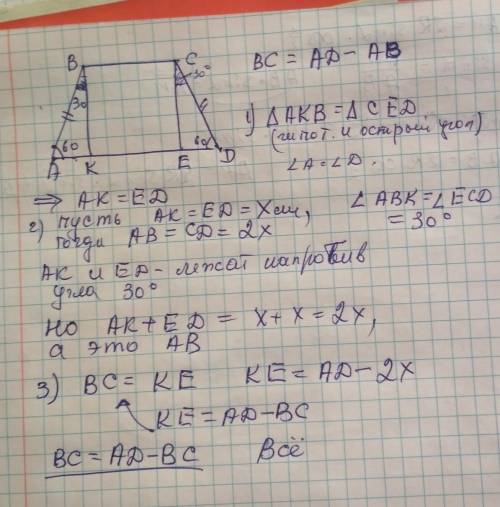 BC = AD - AB
B
C
30
30°
60
60
A
K
E
D
1) △AKB = △CED
(гипот. и острый угол)
∠A = ∠D.
⟹ AK = ED
2) пусть AK = ED = X см,
∠ABK = ∠ECD
= 30°
тогда AB = CD = 2x
AK и ED - лежат напротив
угла 30°
Но AK + ED = x + x = 2x,
а это AB
3) BC = KE KE = AD - 2x
KE = AD - BC
BC = AD - BC Всё